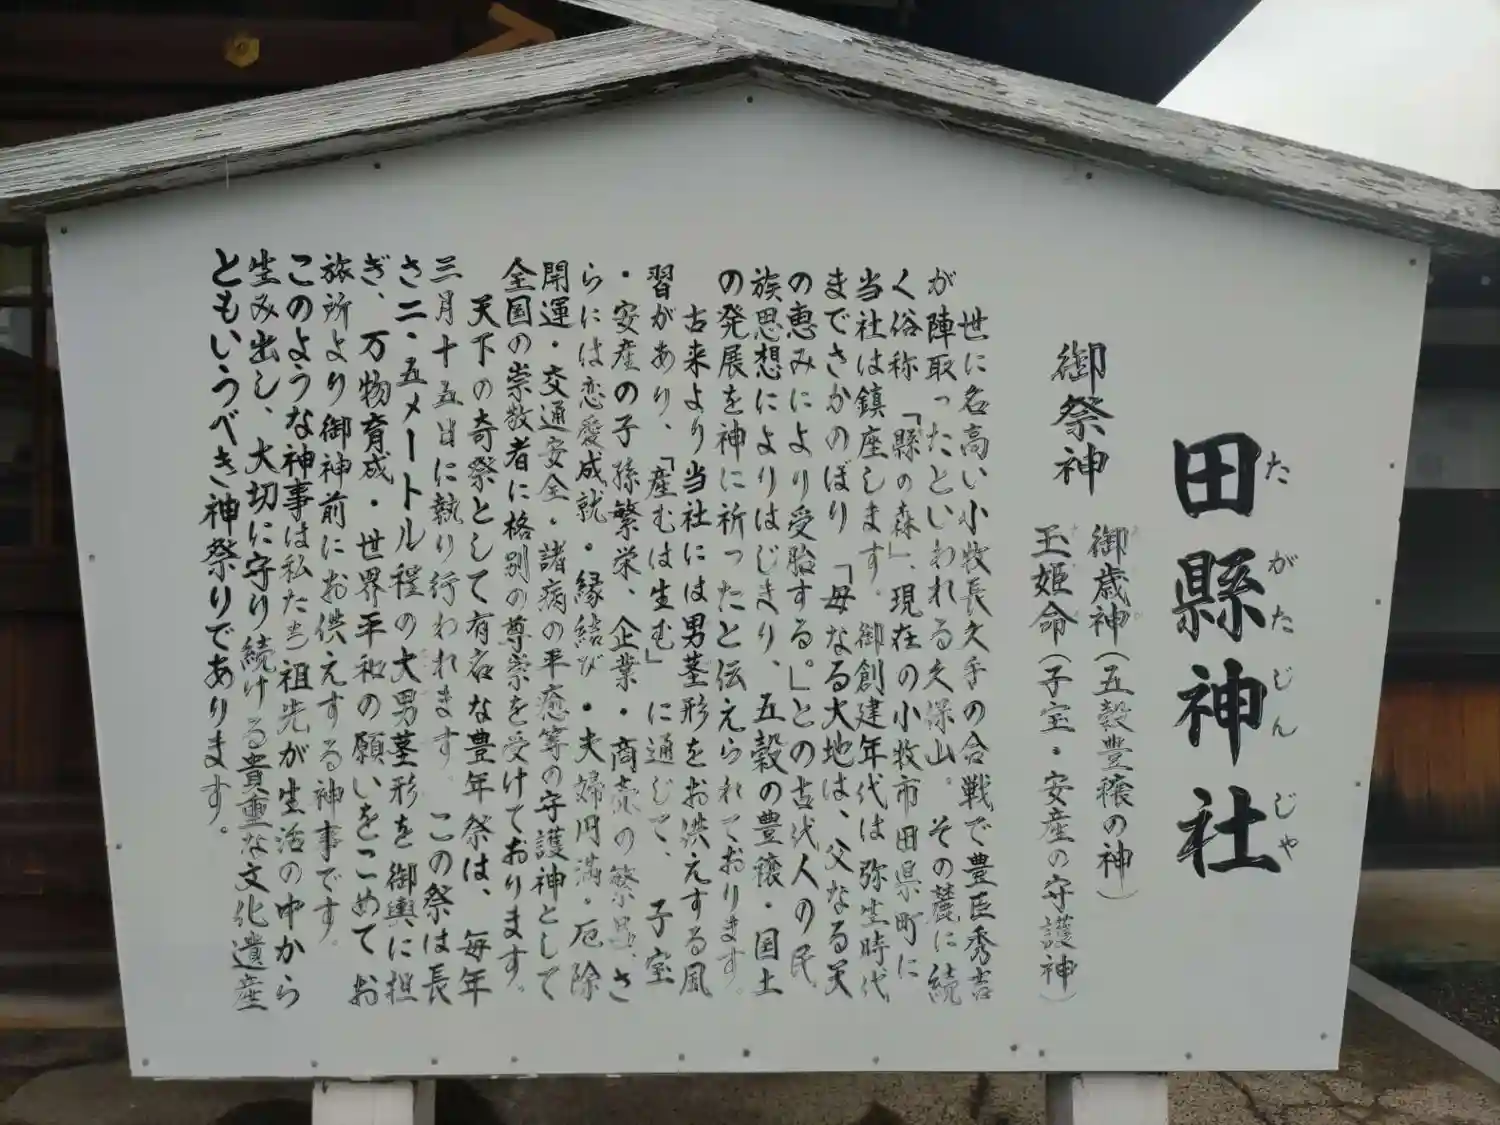 田縣神社
たがたじんじゃ
御祭神
御歳神(五穀豊穣の神)
玉姫命(子宝・安産の守護神)
世に名高い小牧長久手の合戦で豊臣秀吉
が陣取ったといわれる久保山。その麓に続
く俗称「縣の森」、現在の小牧市田県町に
当社は鎮座します。御創建年代は弥生時代
までさかのぼり「母なる大地は、父なる天
の恵みにより受胎する。」との古代人の民
族思想によりはじまり、五穀の豊穣・国土
の発展を神に祈ったと伝えられております。
古来より当社には男茎形をお供えする風
習があり、「産むは生む」に通じて、子宝
・安産の子孫繁栄、企業・商売の繁昌、さ
らには恋愛成就・縁結び・夫婦円満・厄除
開運・交通安全・諸病の平癒等の守護神として
全国の崇敬者に格別の尊崇を受けております。
天下の奇祭として有名な豊年祭は、毎年
三月十五日に執り行われます。この祭は長
さ二・五メートル程の大男茎形を御輿に担
ぎ、万物育成・世界平和の願いをこめてお
旅所より御神前にお供えする神事です。
このような神事は私た当祖先が生活の中から
生み出し、大切に守り続ける貴重な文化遺産
ともいうべき神祭りであります。